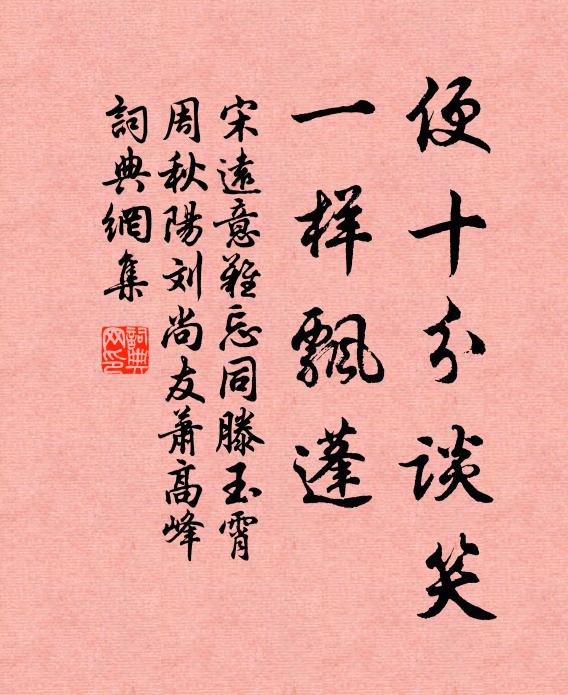 便十分谈笑
一样飄蓬
宋遠意難忘同滕玉霄
周秋陽刘尚友蕭高峰
詞典網集
詞典
网印